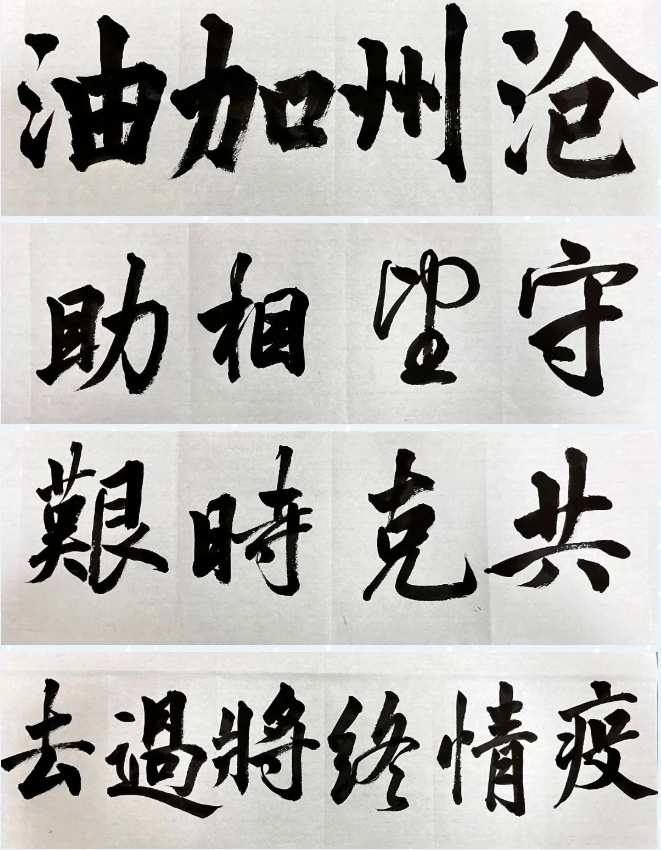 沧州加油
守望相助
共克時艱
疫情終將過去